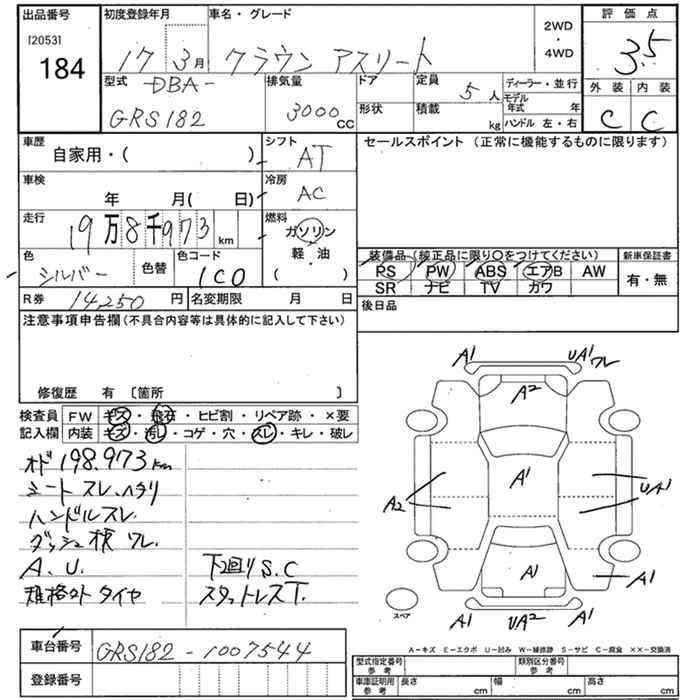 出品番号
[2053]
184
初度登録年月
17 3月
車名・グレード
クラウン アスリート
2WD
・
4WD
評価点
3.5
外装 内装
C C
型式
-DBA-
GRS182
排気量
3000cc
ドア
形状
定員
5人
積載
kg
ディーラー・並行
モデル年式 年
ハンドル 左・右
車歴
自家用・( )
シフト
AT
車検
年 月( 日)
冷房
AC
走行
19万8千973km
燃料
ガソリン
軽・油
( )
色
シルバー
色替
色コード
1C0
R券
14,250円
名変期限 月 日
セールスポイント (正常に機能するものに限ります)
装備品(純正品に限り○をつけてください)
PS PW ABS エアB AW
SR ナビ TV カワ
新車保証書
有・無
後日品
注意事項申告欄(不具合内容等は具体的に記入して下さい)
修復歴 有 〔箇所 〕
検査員記入欄
FW キズ・飛石・ヒビ割・リペア跡・×要
内装 キズ・汚レ・コゲ・穴・スレ・キレ・破レ
オド198.973km
シート スレ、ヘタリ
ハンドルスレ
ダッシュ板 ワレ
A.U.
規格外 タイヤ
下回りS.C
スタットレスT.
A1 UA1 ワレ
A2
A1
A2
UA1
A1
A1
A1 UA2 A1
スペア
A-キズ E-エクボ U-凹み W-補修跡 S-サビ C-腐食 ××-交換済
車台番号
GRS182-1007544
登録番号
型式指定番号 参考
類別区分番号 参考
車庫証明用 参考
長さ cm 幅 cm 高さ cm